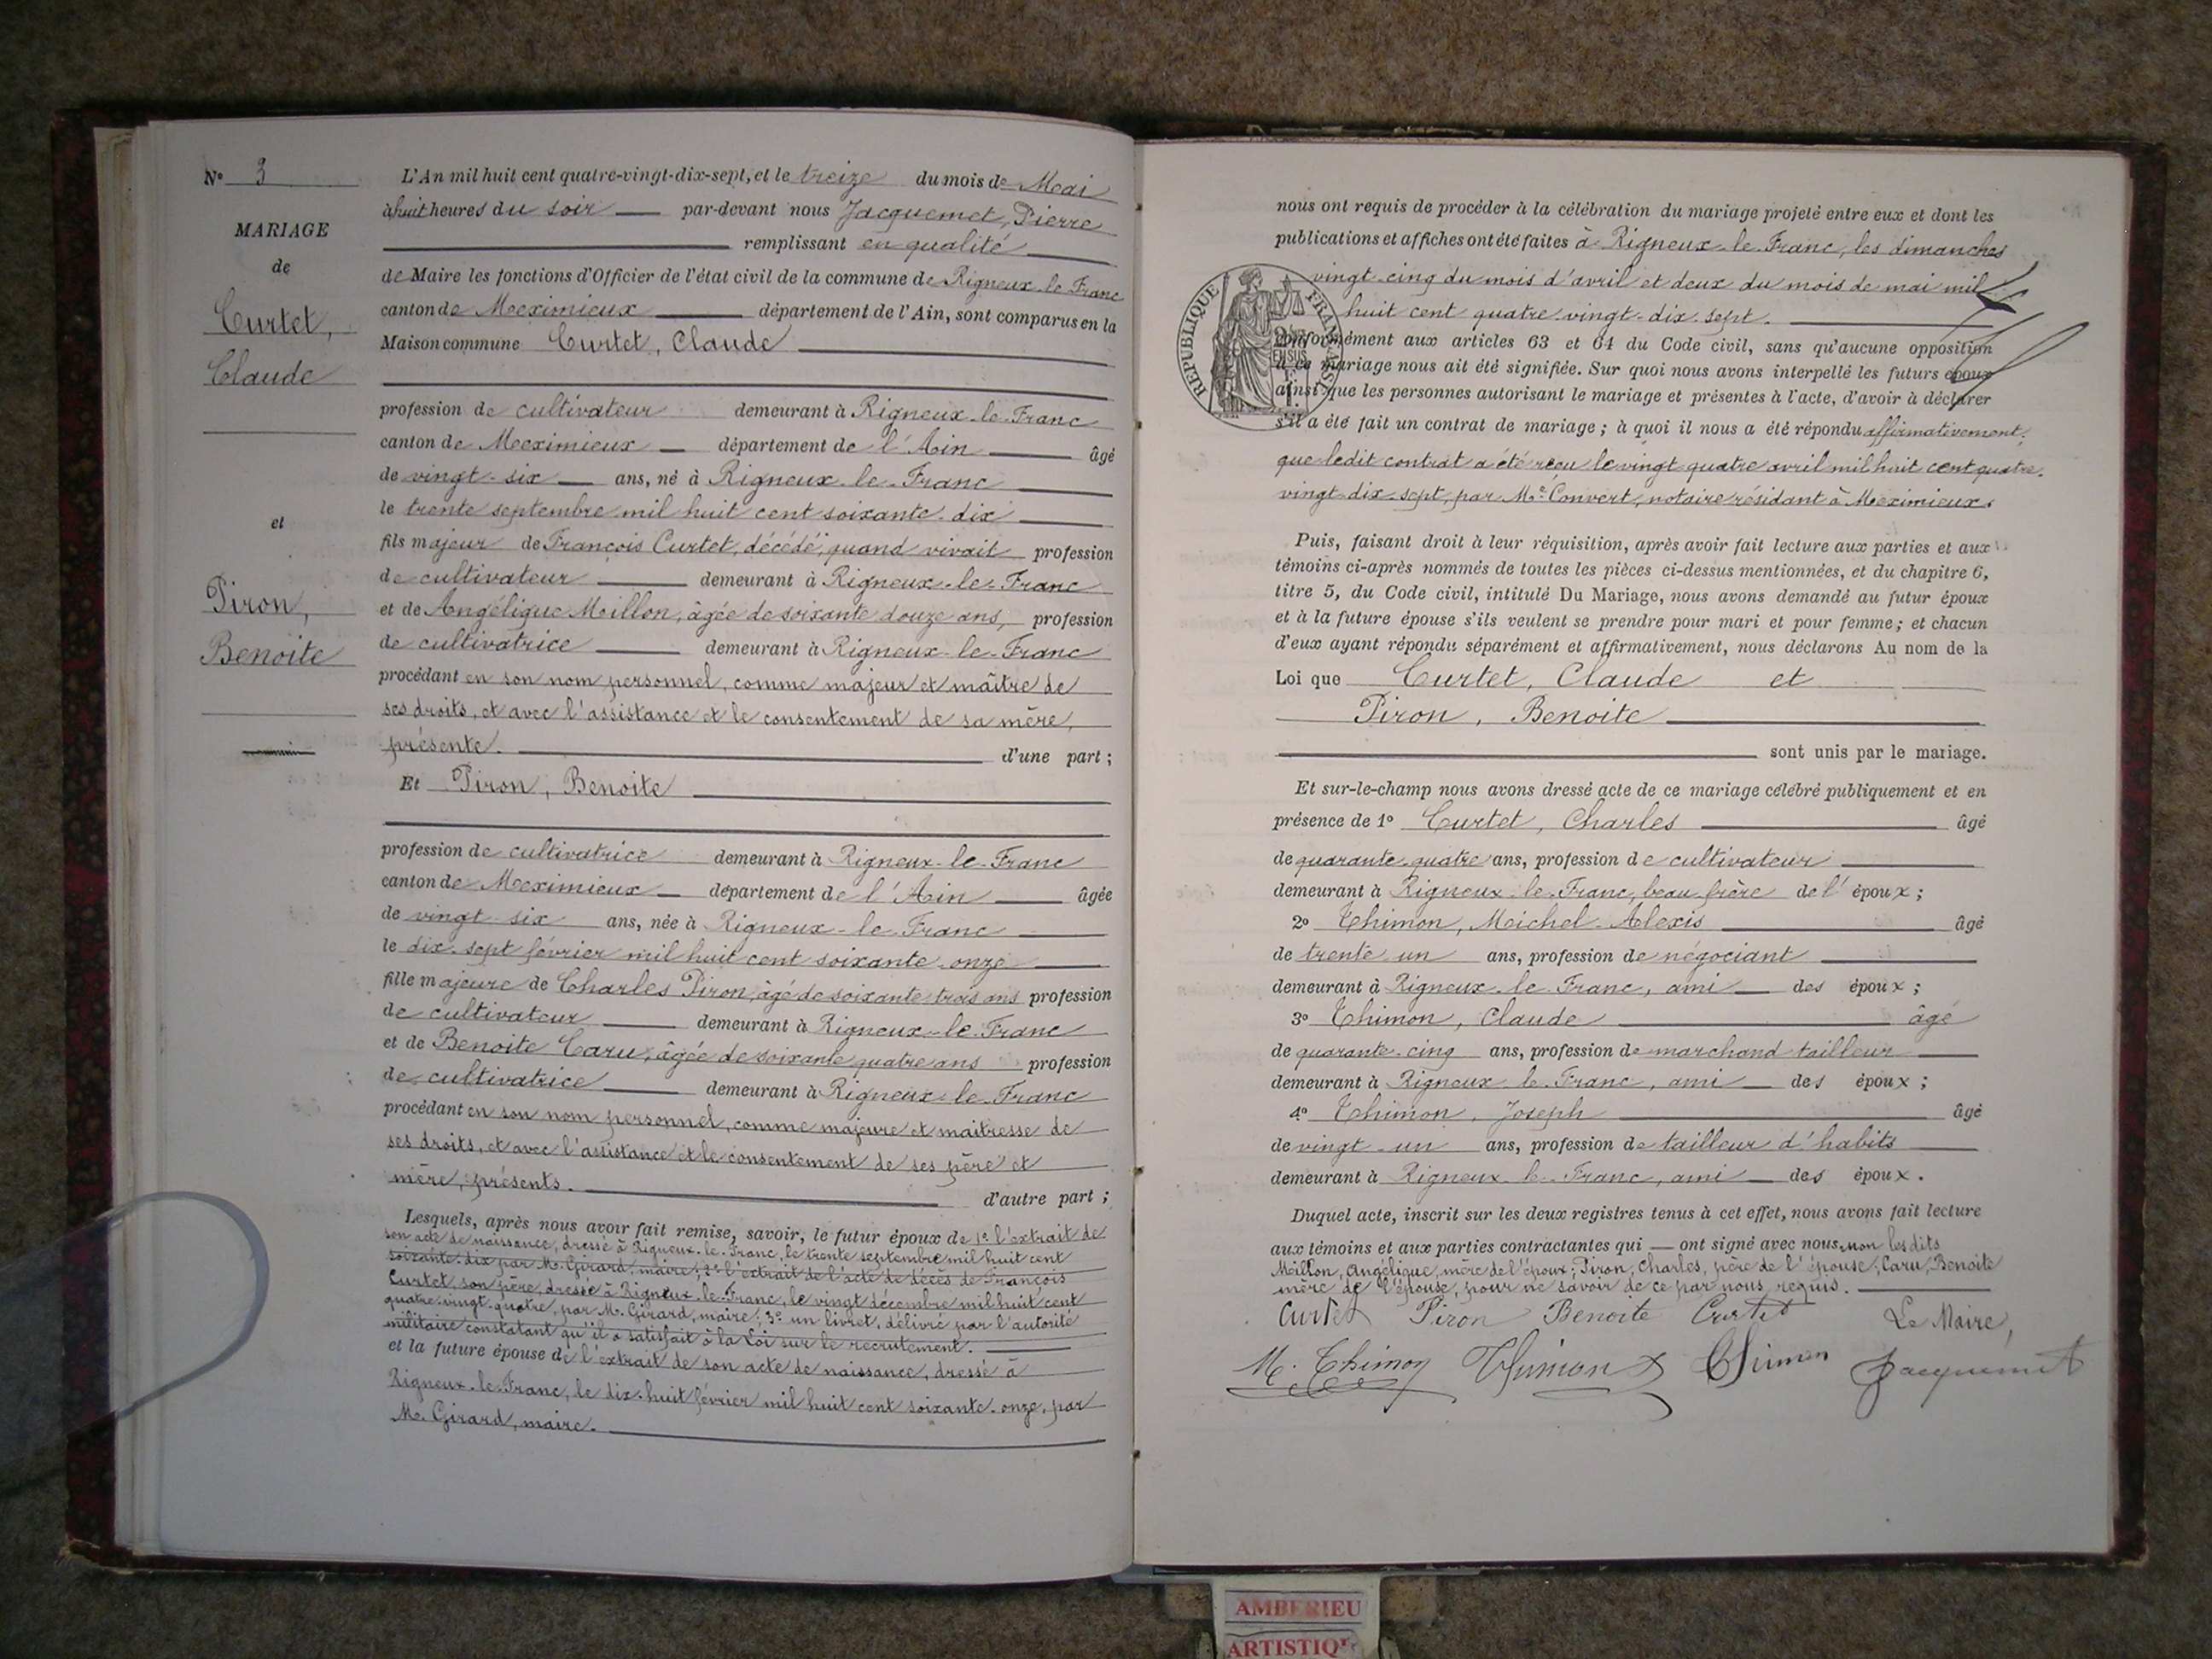 N° 3
MARIAGE
de
Curtet,
Claude
et
Piron,
Benoite
L'An mil huit cent quatre-vingt-dix-sept, et le treize du mois de Mai
à huit heures du soir par-devant nous Jacquemet, Pierre
remplissant en qualité
de Maire les fonctions d'Officier de l'état civil de la commune de Rigneux-le-Franc
canton de Meximieux département de l'Ain, sont comparus en la
Maison commune Curtet, Claude
profession de cultivateur demeurant à Rigneux-le-Franc
canton de Meximieux département de l'Ain âgé
de vingt-six ans, né à Rigneux-le-Franc
le trente septembre mil huit cent soixante-dix
fils majeur de François Curtet, décédé, quand vivait profession
de cultivateur demeurant à Rigneux-le-Franc
et de Angélique Meillon, âgée de soixante douze ans, profession
de cultivatrice demeurant à Rigneux-le-Franc
procédant en son nom personnel, comme majeur et maître de
ses droits, et avec l'assistance et le consentement de sa mère,
présente. d'une part ;
Et Piron, Benoite
profession de cultivatrice demeurant à Rigneux-le-Franc
canton de Meximieux département de l'Ain âgée
de vingt-six ans, née à Rigneux-le-Franc
le dix-sept février mil huit cent soixante-onze
fille majeure de Charles Piron, âgé de soixante trois ans profession
de cultivateur demeurant à Rigneux-le-Franc
et de Benoite Caru, âgée de soixante quatre ans profession
de cultivatrice demeurant à Rigneux-le-Franc
procédant en son nom personnel, comme majeure et maitresse de
ses droits, et avec l'assistance et le consentement de ses père et
mère, présents. d'autre part ;
Lesquels, après nous avoir fait remise, savoir, le futur époux de 1° l'extrait de
son acte de naissance, dressé à Rigneux-le-Franc, le trente septembre mil huit cent
soixante-dix par M. Girard, maire; 2° l'extrait de l'acte de décès de François
Curtet, son père, dressé à Rigneux-le-Franc, le vingt décembre mil huit cent
quatre-vingt-quatre, par M. Girard, maire; 3° un livret, délivré par l'autorité
militaire constatant qu'il a satisfait à la Loi sur le recrutement.
et la future épouse de l'extrait de son acte de naissance, dressé à
Rigneux-le-Franc, le dix-huit février mil huit cent soixante-onze, par
M. Girard, maire.
nous ont requis de procéder à la célébration du mariage projeté entre eux et dont les
publications et affiches ont été faites à Rigneux-le-Franc, les dimanches
vingt-cinq du mois d'avril et deux du mois de mai mil
huit cent quatre-vingt-dix-sept.
RÉPUBLIQUE FRANÇAISE
conformément aux articles 63 et 64 du Code civil, sans qu'aucune opposition
à ce mariage nous ait été signifiée. Sur quoi nous avons interpellé les futurs époux
ainsi que les personnes autorisant le mariage et présentes à l'acte, d'avoir à déclarer
s'il a été fait un contrat de mariage ; à quoi il nous a été répondu affirmativement.
que ledit contrat a été reçu le vingt quatre avril mil huit cent quatre-
vingt-dix-sept, par Me Convert, notaire résidant à Meximieux.
Puis, faisant droit à leur réquisition, après avoir fait lecture aux parties et aux
témoins ci-après nommés de toutes les pièces ci-dessus mentionnées, et du chapitre 6,
titre 5, du Code civil, intitulé Du Mariage, nous avons demandé au futur époux
et à la future épouse s'ils veulent se prendre pour mari et pour femme ; et chacun
d'eux ayant répondu séparément et affirmativement, nous déclarons Au nom de la
Loi que Curtet, Claude et
Piron, Benoite
sont unis par le mariage.
Et sur-le-champ nous avons dressé acte de ce mariage célébré publiquement et en
présence de 1° Curtet, Charles âgé
de quarante-quatre ans, profession de cultivateur
demeurant à Rigneux-le-Franc, beau frère de l'époux ;
2° Thimon, Michel-Alexis âgé
de trente un ans, profession de négociant
demeurant à Rigneux-le-Franc, ami des époux ;
3° Thimon, Claude âgé
de quarante-cinq ans, profession de marchand tailleur
demeurant à Rigneux-le-Franc, ami des époux ;
4° Thimon, Joseph âgé
de vingt-un ans, profession de tailleur d'habits
demeurant à Rigneux-le-Franc, ami des époux.
Duquel acte, inscrit sur les deux registres tenus à cet effet, nous avons fait lecture
aux témoins et aux parties contractantes qui ont signé avec nous, non les dits
Meillon, Angélique, mère de l'époux; Piron, Charles, père de l'épouse; Caru, Benoite
mère de l'épouse, pour ne savoir de ce par nous requis.
Curtet Piron Benoite Curtet Le Maire,
M. Thimon Thimon Thimon Jacquemet
AMBERIEU
ARTISTIQ